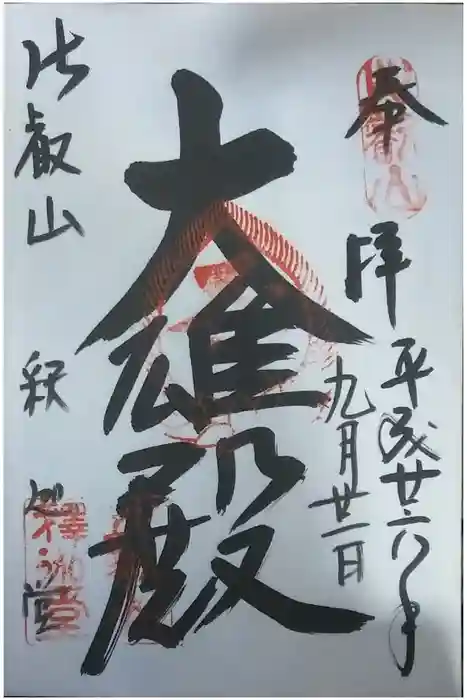 奉拝
平成廿六年
九月廿一日
大雄殿
比叡山
釈迦堂
釋迦堂